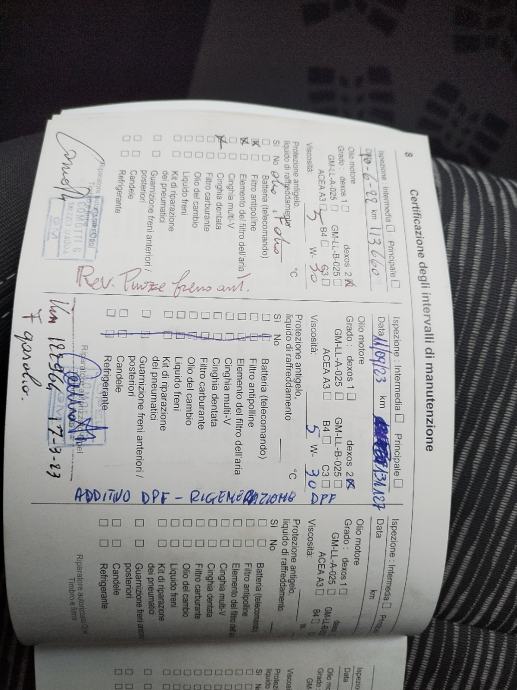 8 Certificazione degli intervalli di manutenzione
Ispezione : Intermedia ☐ Principale ☐
km 113660
Olio motore
Grado : dexos 1 ☐ dexos 2
GM-LL-A-025 ☐ GM-LL-B-025 ☐
ACEA A3 ☐ B4 ☐ C3
Viscosità: 5 W- 30
Protezione antigelo,
liquido di raffreddamento °C
Si No olio, F. olio
Batteria (telecomando)
Filtro antipolline
Elemento del filtro dell'aria
Cinghia multi-V
Cinghia dentata
Filtro carburante
Olio del cambio
Liquido freni
Kit di riparazione
dei pneumatici
Guarnizioni freni anteriori /
posteriori
Candele
Refrigerante
Rev. Pinze freno ant.
Ispezione : Intermedia ☐ Principale ☐
Data 11/04/23 km 131127
Olio motore
Grado : dexos 1 ☐ dexos 2
GM-LL-A-025 ☐ GM-LL-B-025 ☐
ACEA A3 ☐ B4 ☐ C3 ☐
Viscosità: 5 W- 30
Protezione antigelo,
liquido di raffreddamento °C
Si No
Batteria (telecomando)
Filtro antipolline
Elemento del filtro dell'aria
Cinghia multi-V
Cinghia dentata
Filtro carburante
Olio del cambio
Liquido freni
Kit di riparazione
dei pneumatici
Guarnizioni freni anteriori /
posteriori
Candele
Refrigerante
17-3-23
F. gasolio.
ADDITIVO DPF - RIGENERAZIONE DPF
Ispezione : Intermedia ☐
Data km
Olio motore
Grado : dexos 1 ☐
GM-LL-A-025 ☐
ACEA A3 ☐ B4 ☐
Viscosità:
Protezione antigelo,
liquido di raffreddamento
Si No
Batteria
Filtro antipolline
Elemento del filtro
Cinghia multi-V
Cinghia dentata
Filtro carburante
Olio del cambio
Liquido freni
Kit di riparazione
dei pneumatici
Guarnizioni freni
posteriori
Candele
Refrigerante